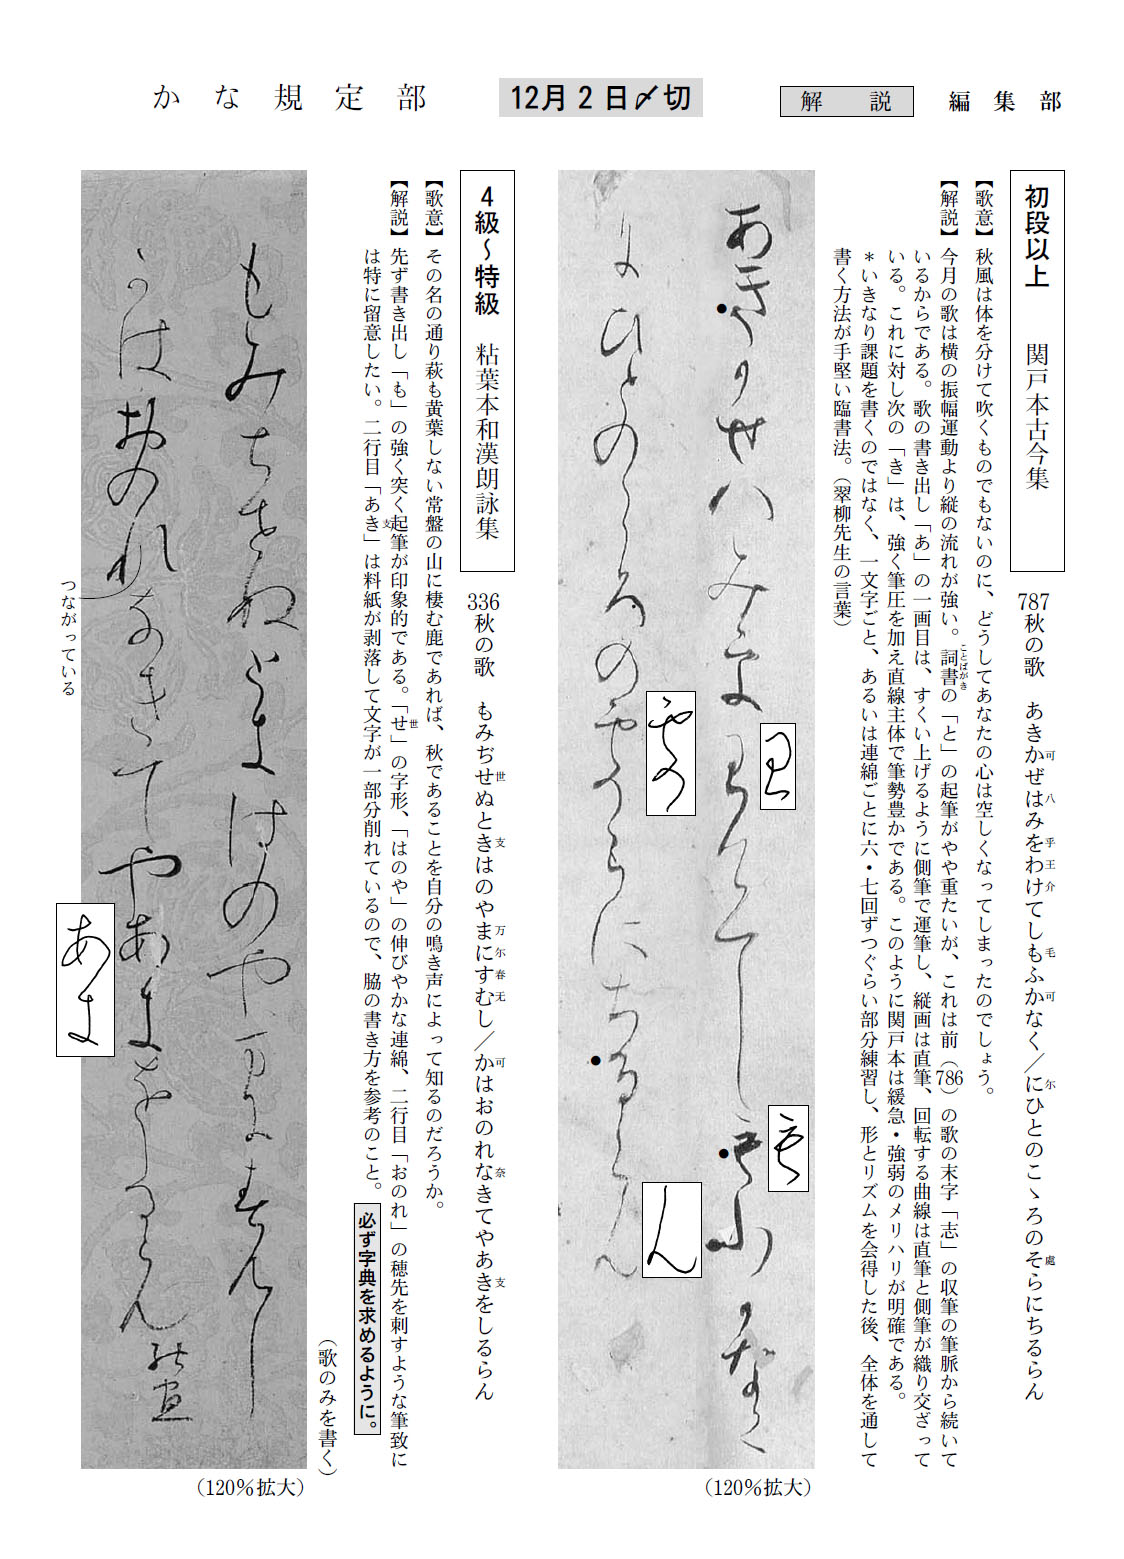 かな規定部
12月2日〆切
解説
編集部
初段以上 関戸本古今集
787秋の歌 あきかぜはみをわけてしもふかなく／にひとのこゝろのそらにちるらん
可 八 乎 王 介 毛 可 尓 處
【歌意】秋風は体を分けて吹くものでもないのに、どうしてあなたの心は空しくなってしまったのでしょう。
【解説】今月の歌は横の振幅運動より縦の流れが強い。詞書の「と」の起筆がやや重たいが、これは前（786）の歌の末字「志」の収筆の筆脈から続いて
ことばがき
いるからである。歌の書き出し「あ」の一画目は、すくい上げるように側筆で運筆し、縦画は直筆、回転する曲線は直筆と側筆が織り交ざって
いる。これに対し次の「き」は、強く筆圧を加え直線主体で筆勢豊かである。このように関戸本は緩急・強弱のメリハリが明確である。
＊いきなり課題を書くのではなく、一文字ごと、あるいは連綿ごとに六・七回ずつぐらい部分練習し、形とリズムを会得した後、全体を通して
書く方法が手堅い臨書法。（翠柳先生の言葉）
あきかせハみをわけてしもふかなく
にひとのこゝろのそらにちるらん
（120%拡大）
4級〜特級 粘葉本和漢朗詠集
336秋の歌 もみぢせぬときはのやまにすむし／かはおのれなきてやあきをしるらん
世 支 万 尓 春 无 可 奈 支
【歌意】その名の通り萩も黄葉しない常盤の山に棲む鹿であれば、秋であることを自分の鳴き声によって知るのだろうか。
【解説】先ず書き出し「も」の強く突く起筆が印象的である。「せ」の字形、「はのや」の伸びやかな連綿、二行目「おのれ」の穂先を刺すような筆致に
世
は特に留意したい。二行目「あき」は料紙が剥落して文字が一部分削れているので、脇の書き方を参考のこと。
支
必ず字典を求めるように。
（歌のみを書く）
もみちせぬときはのやまにすむし
かはおのれなきてやあきをしるらん
つながっている
あき
（120%拡大）